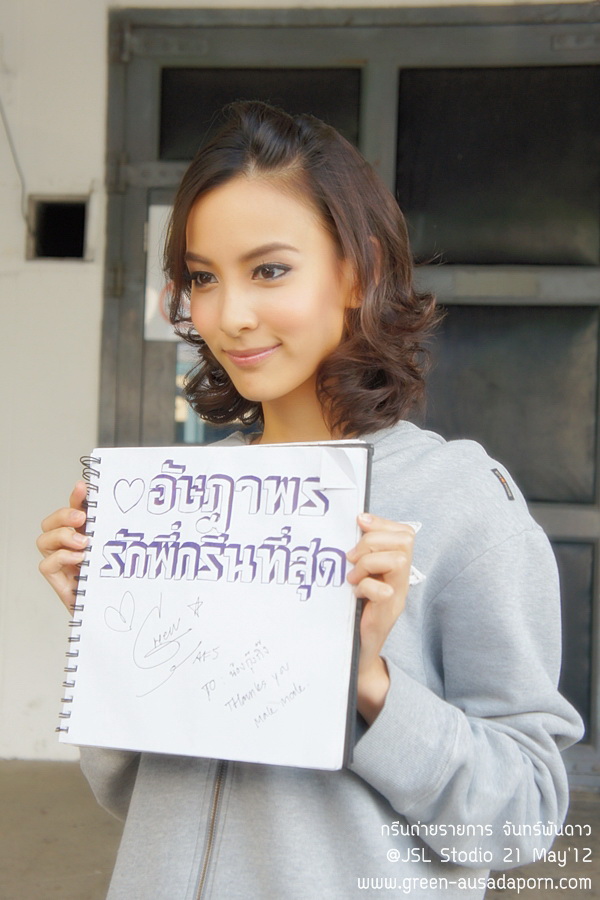 ♡อัษฎาพร
รักพี่กรีนที่สุด
Green
TO น้องกุ๊งกิ๊ง
Thanks you
กรีนถ่ายรายการ จันทร์พันดาว
@JSL Stodio 21 May'12
www.green-ausadaporn.com